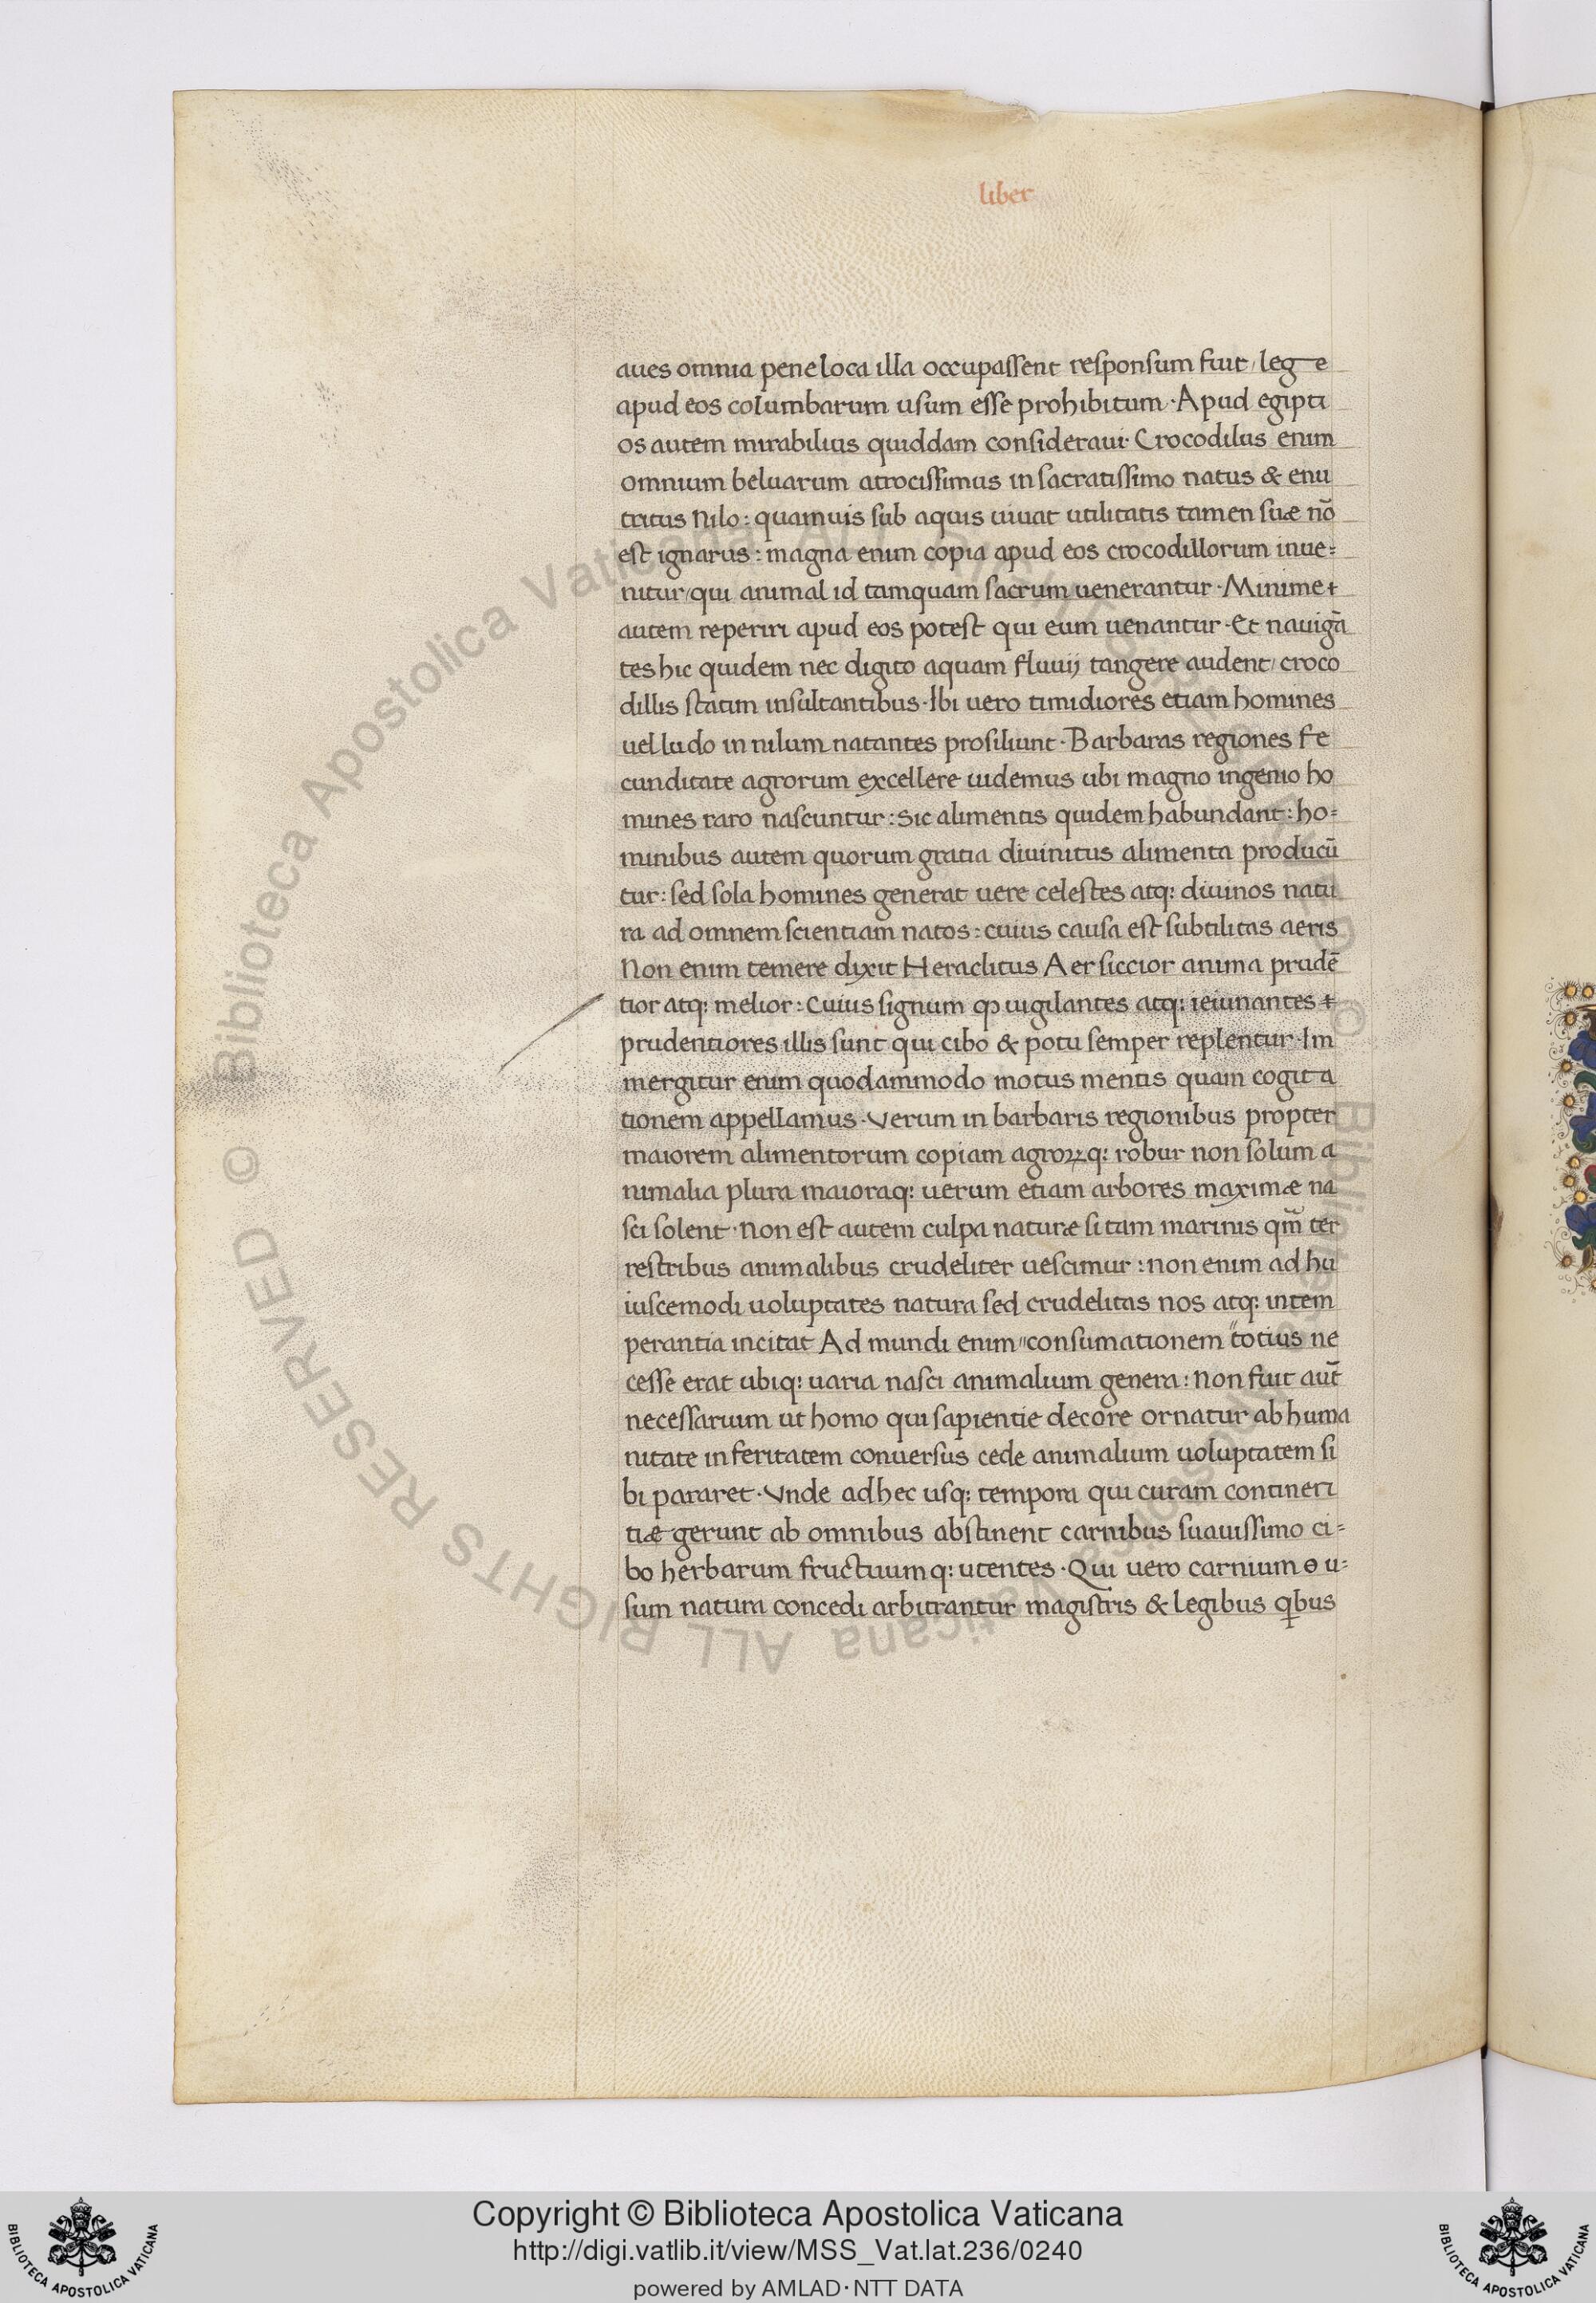 liber
aues omnia pene loca illa occupassent responsum fuit / lege
apud eos columbarum usum esse prohibitum · Apud egipti
os autem mirabilius quiddam consideraui · Crocodilus enim
omnium beluarum atrocissimus in sacratissimo natus & enu
tritus Nilo : quamuis sub aquis uiuat utilitatis tamen suæ nō
est ignarus : magna enim copia apud eos crocodillorum inue=
nitur / qui animal id tamquam sacrum uenerantur · Minime
autem reperiri apud eos potest qui eum uenantur · Et nauigā
tes hic quidem nec digito aquam fluuij tangere audent / croco
dillis statim insultantibus · Ibi uero timidiores etiam homines
uel ludo in nilum natantes prosiliunt · Barbaras regiones fe
cunditate agrorum excellere uidemus ubi magno ingenio ho
mines raro nascuntur : Sic alimentis quidem habundant : ho=
minibus autem quorum gratia diuinitus alimenta producū
tur : sed sola homines generat uere celestes atq: diuinos natu
ra ad omnem scientiam natos : cuius causa est subtilitas aeris
Non enim temere dixit Heraclitus Aer siccior anima prudē
tior atq: melior : Cuius signum ꝙ uigilantes atq: ieiunantes
prudentiores illis sunt qui cibo & potu semper replentur · Im
mergitur enim quodammodo motus mentis quam cogita
tionem appellamus · Verum in barbaris regionibus propter
maiorem alimentorum copiam agroꝝq: robur non solum a
nimalia plura maioraq: uerum etiam arbores maximæ na
sci solent · Non est autem culpa naturæ si tam marinis qm̄ ter
restribus animalibus crudeliter uescimur : non enim ad hu
iuscemodi uoluptates natura sed crudelitas nos atq: intem
perantia incitat Ad mundi enim "consumationem "totius ne
cesse erat ubiq: uaria nasci animalium genera : Non fuit aut̄
necessarium ut homo qui sapientie decore ornatur ab huma
nitate in feritatem conuersus cede animalium uoluptatem si
bi pararet · Vnde ad hec usq: tempora qui curam contineti
tiæ gerunt ab omnibus abstinent carnibus suauissimo ci=
bo herbarum fructuumq: utentes · Qui uero carnium u=
sum natura concedi arbitrantur magistris & legibus qbus
© Biblioteca Apostolica Vaticana ALL RIGHTS RESERVED
© Biblioteca Apostolica Vaticana ALL RIGHTS RESERVED
BIBLIOTECA APOSTOLICA VATICANA
Copyright © Biblioteca Apostolica Vaticana
http://digi.vatlib.it/view/MSS_Vat.lat.236/0240
powered by AMLAD·NTT DATA
BIBLIOTECA APOSTOLICA VATICANA